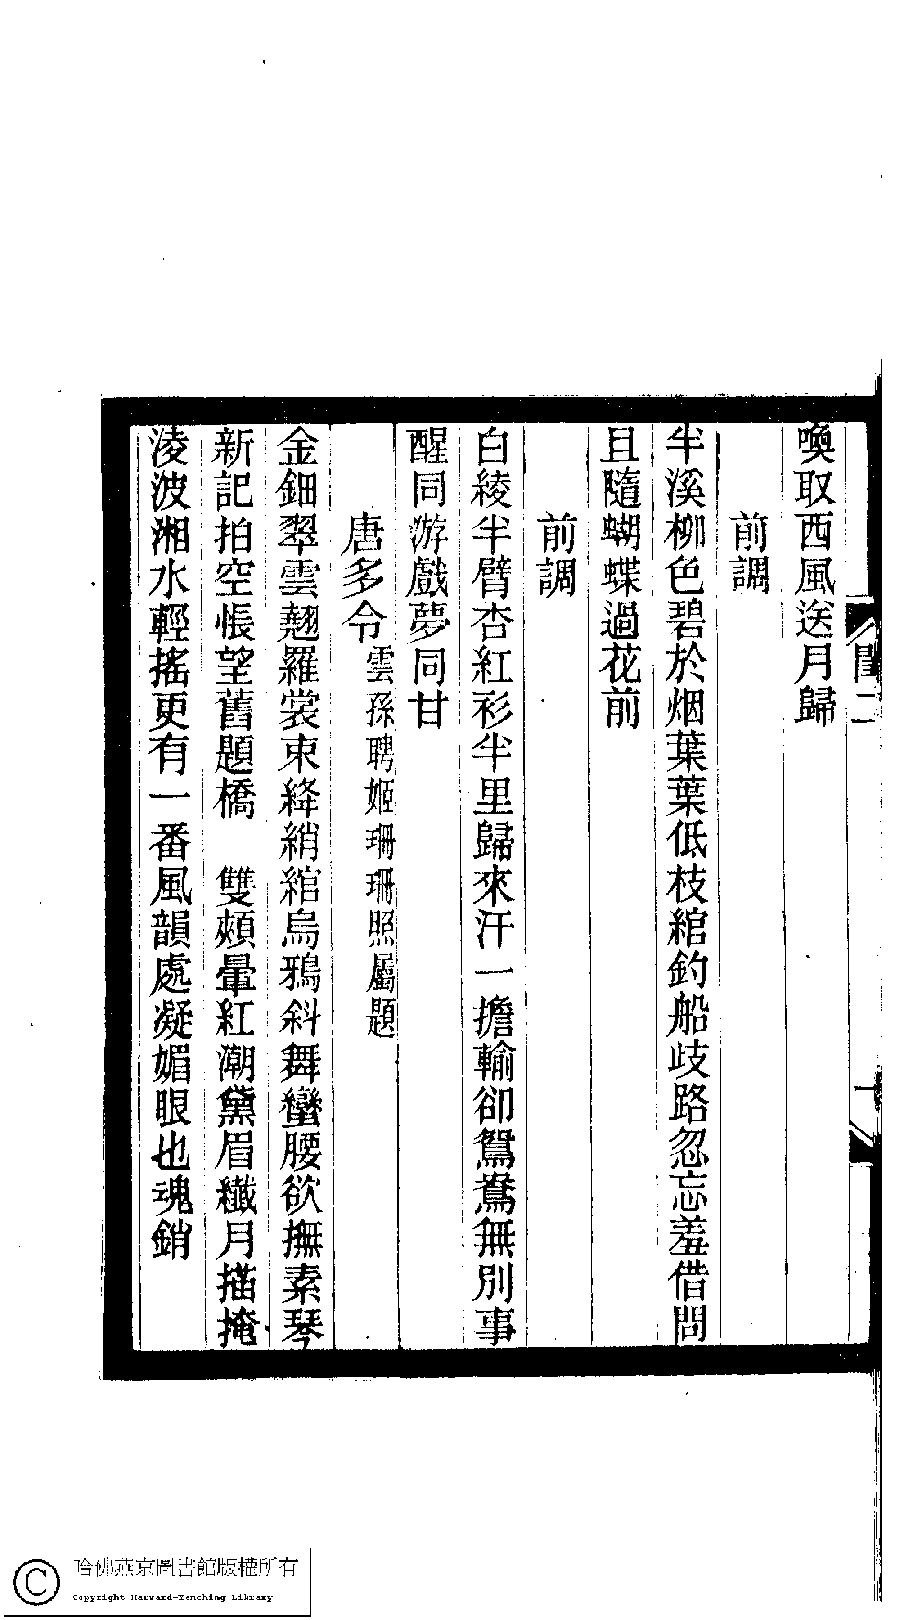 喚取西風送月歸
前調
半溪柳色碧於烟葉葉低枝綰釣船歧路忽忘羞借問
且隨蝴蝶過花前
前調
白綾半臂杏紅衫半里歸來汗一擔輸卻鴛鴦無別事
醒同游戲夢同甘
唐多令雲孫聘姬珊珊照屬題
金鈿翠雲翹羅裳束絳綃綰烏鴉斜舞蠻腰欲撫素琴
新記拍空悵望舊題橋　雙頰暈紅潮黛眉纖月描掩
淩波湘水輕搖更有一番風韻處凝媚眼也魂銷
哈佛燕京圖書館版權所有
Copyright Harvard-Yenching Library